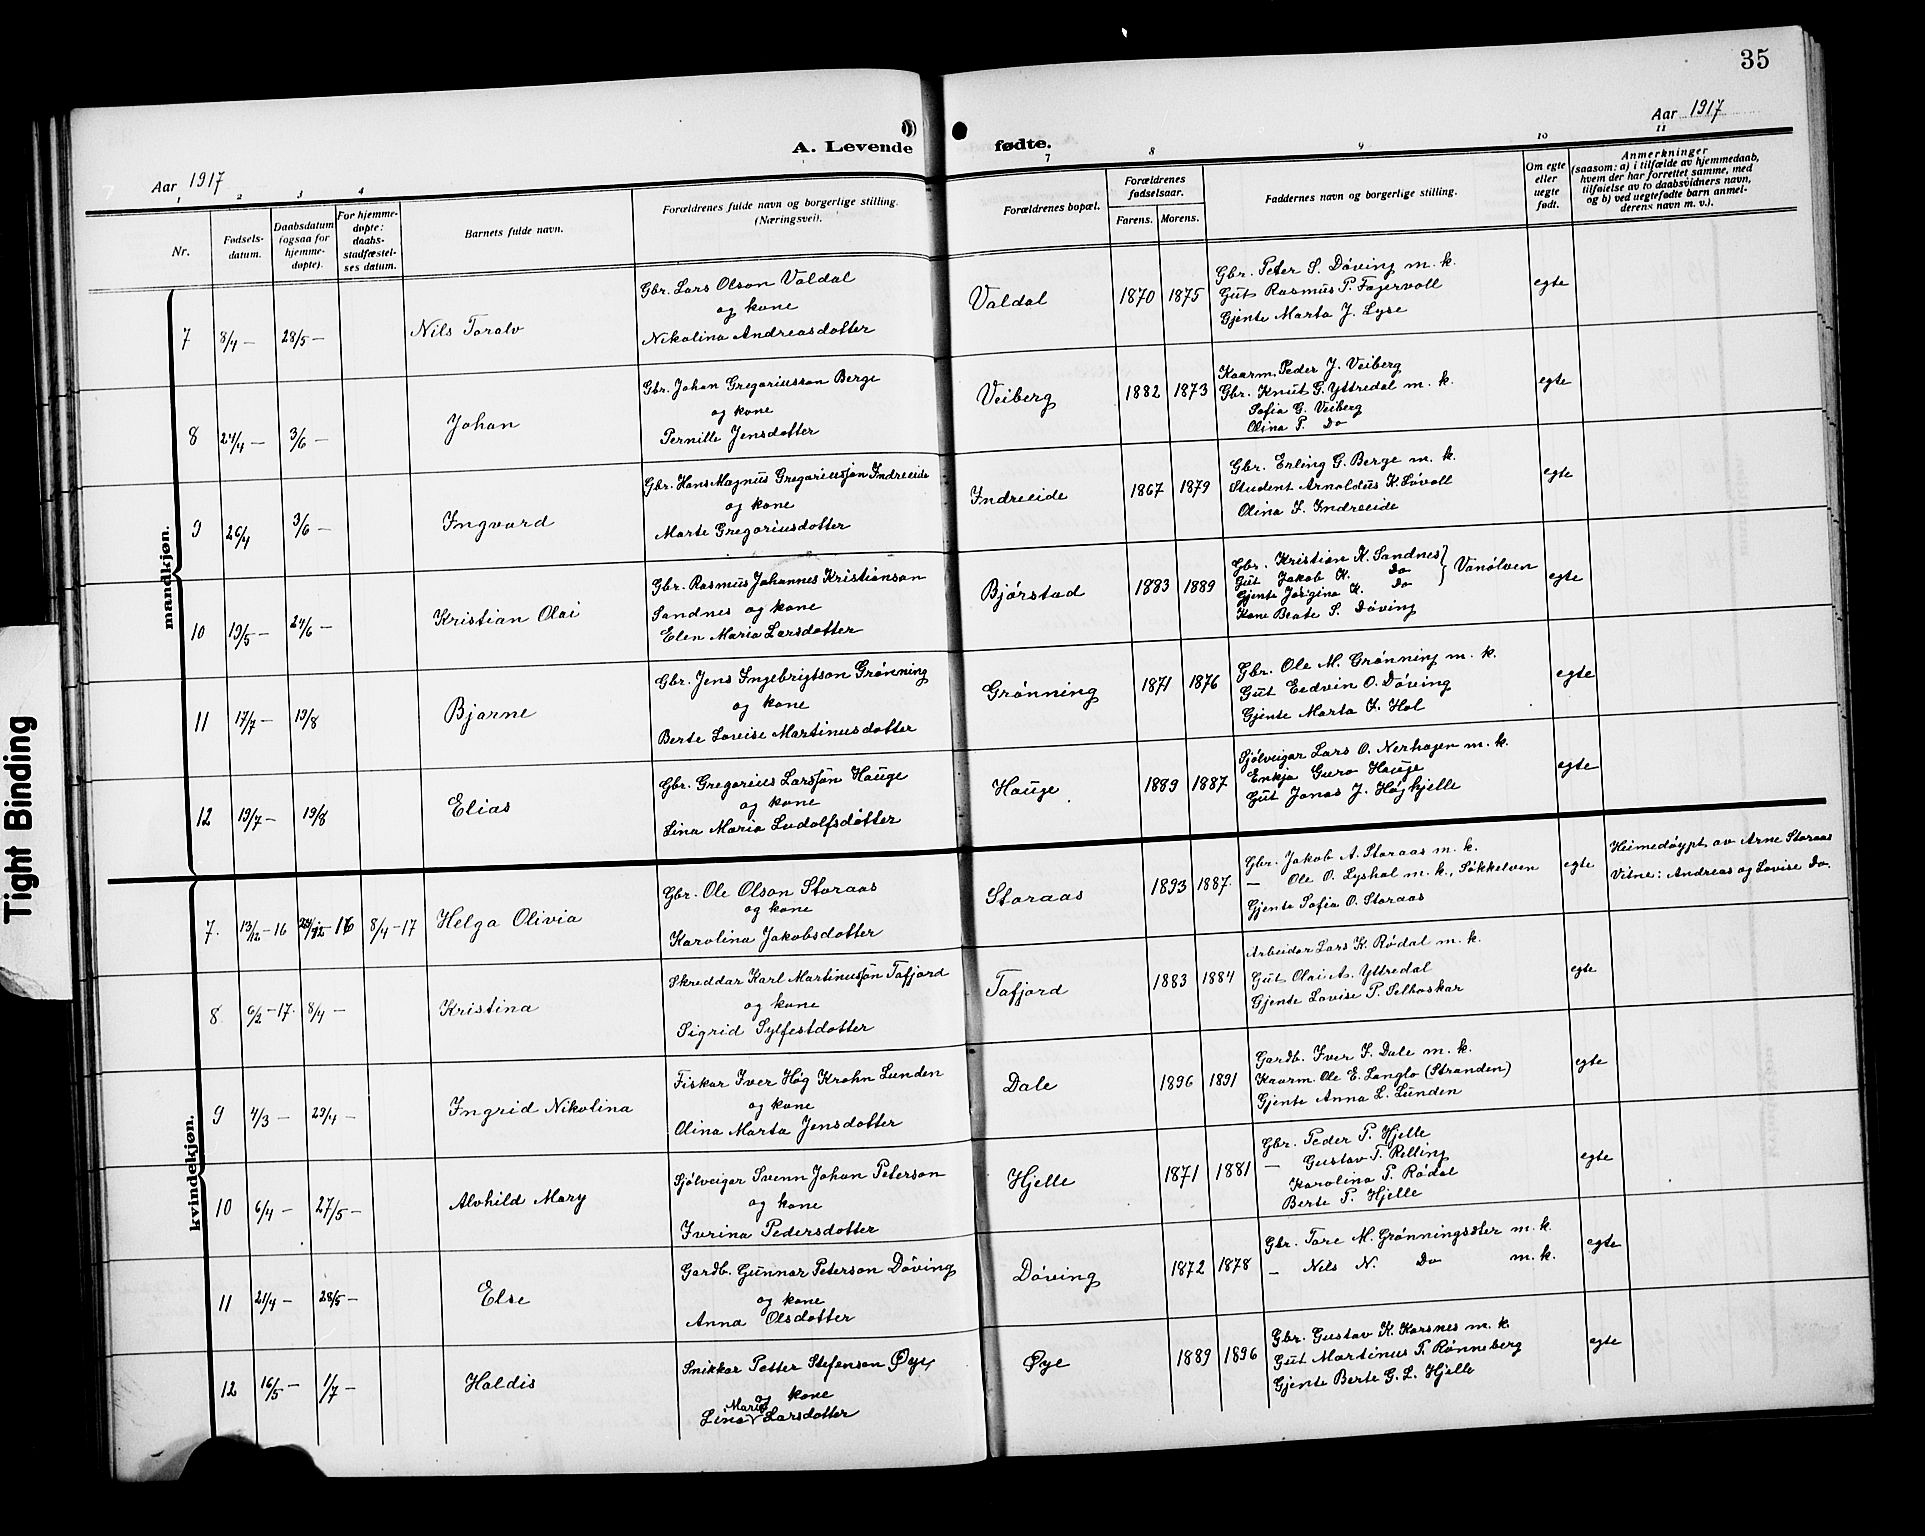 35
Aar 1917
A. Levende fødte.
Aar 1917
1 2 3 4 7 8 9 10 11
Nr.
Fødsels-
datum.
Daabsdatum
(ogsaa for
hjemme-
døpte).
For hjemme-
døpte:
daabs-
stadfæstel-
ses datum.
Barnets fulde navn.
Forældrenes fulde navn og borgerlige stilling.
(Næringsvei).
Forældrenes bopæl.
Forældrenes
fødselsaar.
Farens. Morens.
Faddernes navn og borgerlige stilling.
Om egte
eller
uegte
født.
Anmerkninger
(saasom: a) i tilfælde av hjemmedaab,
hvem der har forrettet samme, med
tilføielse av to daabsvidners navn,
og b) ved uegtefødte barn anmel-
derens navn m. v.).
mandkjøn.
7 8/4 — 28/5 — Nils Toralv
Gbr. Lars Olson Valdal
og kone
Nikolina Andreasdotter
Valdal 1870 1875
Gbr. Peter S. Døving m. k.
Gut Rasmus P. Fagervoll
Gjente Marta J. Lyse
egte
8 24/4 — 3/6 — Johan
Gbr. Johan Gregoriusson Berge
og kone
Pernille Jensdotter
Veiberg 1882 1873
Kaarm. Peder J. Veiberg
Gbr. Knut G. Yttredal m. k.
Sofia G. Veiberg
Olina P. Do
egte
9 26/4 3/6 — Ingvard
Gbr. Hans Magnus Gregoriusson Indreeide
og kone
Marte Gregoriusdotter
Indreeide 1867 1879
Gbr. Erling G. Berge m. k.
Student Arnoldus K. Løvoll
Olina I. Indreeide
egte
10 19/5 — 24/6 — Kristian Olai
Gbr. Rasmus Johannes Kristianson
Sandnes og kone
Elen Maria Larsdotter
Bjørstad 1883 1889
Gbr. Kristian K. Sandnes } Vanølven
Gut Jakob K. Do
Gjente Jørgina K. Do
Kone Beate S. Døving
egte
11 17/7 — 19/8 Bjarne
Gbr. Jens Ingebrigtson Grønning
og kone
Berte Lovise Martinusdotter
Grønning 1871 1876
Gbr. Ole M. Grønning m. k.
Gut Eedvin O. Døving
Gjente Marta I. Hol
egte
12 19/7 — 19/8 Elias
Gbr. Gregorius Larsson Hauge
og kone
Lina Maria Ludolfsdotter
Hauge 1889 1887
Sjølveigar Lars O. Nerhagen m. k.
Enkja Guro Hauge
Gut Jonas J. Høghjelle
egte
kvindekjøn.
7. 13/12 — 16 24/12 — 16 8/4 — 17 Helga Olivia
Gbr. Ole Olson Storaas
og kone
Karolina Jakobsdotter
Storaas 1893 1887
Gbr. Jakob A. Storaas m. k.
— Ole O. Lyshol m. k., Søkkelven
Gjente Sofia O. Storaas
egte
Heimedøypt av Arne Storaas
Vitne: Andreas og Lovise Do.
8 6/2 — 17. 8/4 — Kristina
Skreddar Karl Martinusson Tafjord
og kone
Sigrid Sylfestdotter
Tafjord 1883 1884
Arbeidar Lars K. Rødal m. k.
Gut Olai A. Yttredal
Gjente Lovise P. Selboskar
egte
9 4/3 — 29/4 — Ingrid Nikolina
Fiskar Iver Høg Krohn Lunden
og kone
Olina Marta Jensdotter
Dale 1896 1891
Gardb. Iver I. Dale m. k.
Kaarm. Ole E. Langlo (Stranden)
Gjente Anna L. Lunden
egte
10 6/4 — 27/5 — Alvhild Mary
Sjølveigar Svenn Johan Peterson
og kone
Iverina Pedersdotter
Hjelle 1871 1881
Gbr. Peder P. Hjelle
— Gustav T. Relling
Karolina P. Rødal
Berte P. Hjelle
egte
11 21/4 — 28/5 — Else
Gardb. Gunnar Peterson Døving
og kone
Anna Olsdotter
Døving 1872 1878
Gbr. Tore M. Grønningsæter m. k.
— Nils N. Do m. k.
egte
12 16/5 — 1/7 — Haldis
Snikkar Petter Stefenson Øye,
og kone
Lina Maria Larsdotter
Øye 1889 1896
Gbr. Gustav K. Korsnes m. k.
Gut Martinus P. Rønneberg
Gjente Berte G. L. Hjelle
egte
Tight Binding